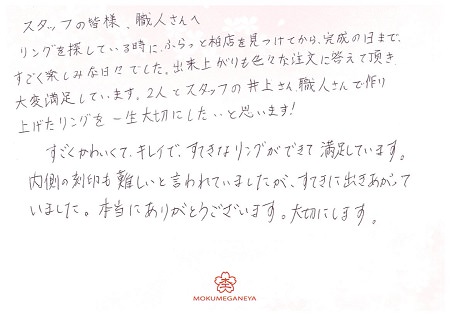 スタッフの皆様、職人さんへ
リングを探している時に、ふらっと柏店を見つけてから、完成の日まで、
すごく楽しみな日々でした。出来上がりも色々な注文に答えて頂き
大変満足しています。2人とスタッフの井上さん、職人さんで作り
上げたリングを一生大切にしたいと思います!
すごくかわいくて、キレイで、すてきなリングができて満足しています。
内側の刻印も難しいと言われていましたが、すてきに出きあがって
いました。本当にありがとうございます。大切にします。
MOKUMEGANEYA